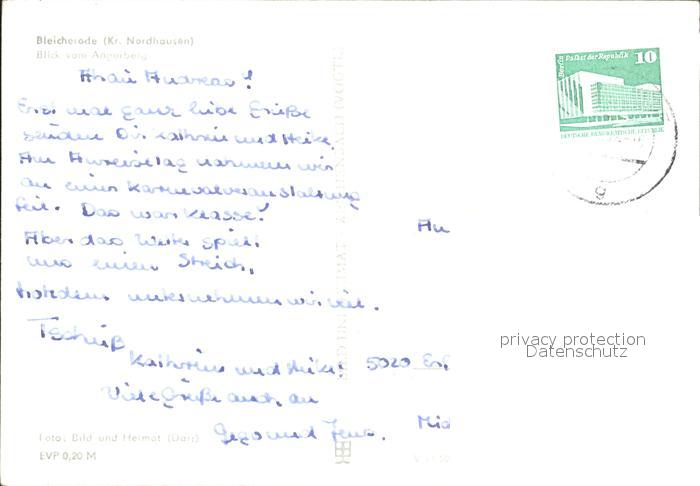 Bleicherode (Kr. Nordhausen)
Blick vom Angerberg
Ahoi Andreas!
Erst mal ganz liebe Grüße
senden Dir Kathrin und Heike.
Am Anreisetag nahmen wir
an einer Karnevalveranstaltung
teil. Das war Klasse!
Aber das Wetter spielt
uns einen Streich,
trotzdem unternehmen wir viel.
Tschüß
Kathrin und Heike
Viele Grüße auch an
und Jens.
An
5020 Erf
Foto: Bild und Heimat (Darr)
EVP 0,20 M
BILD UND HEIMAT
Berlin Palast der Republik 10
DEUTSCHE DEMOKRATISCHE REPUBLIK
g
privacy protection
Datenschutz